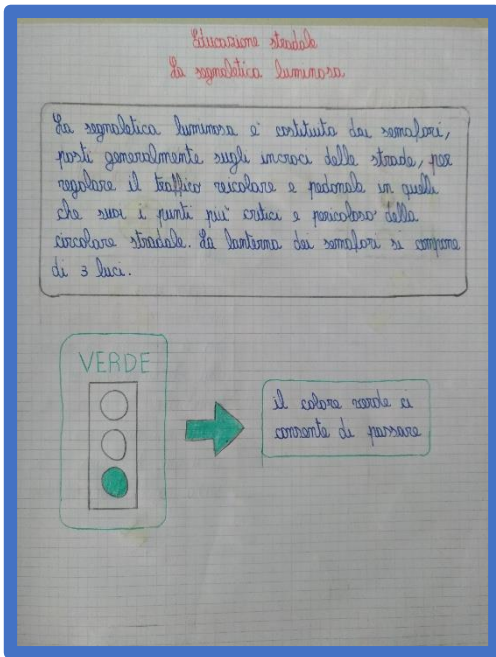 Educazione stradale
La segnaletica luminosa
La segnaletica luminosa e' costituita dai semafori,
posti generalmente sugli incroci delle strade, per
regolare il traffico veicolare e pedonale in quelli
che suoi i punti piu' critici e pericolosi della
circolare stradale. La lanterna dei semafori si compone
di 3 luci.
VERDE
il colore verde ci
consente di passare